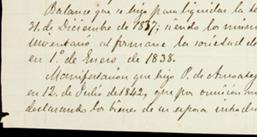 Balance que se hizo para liquidar la te
31 de Diciembre de 1837; siendo los mism
inventario al formarse la sociedad de
en 1º de Enero de 1838.
Manifestacion que hizo P. de
en 12 de Julio de 1842, que por omision
declarando los bienes de su esposa introdu